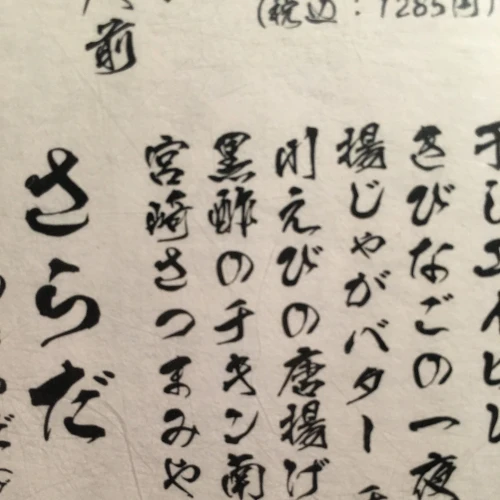 (税込：1285円)
干しエイヒレ
きびなごの一夜
揚じゃがバター
川えびの唐揚げ
黒酢のチキン南
宮崎さつまみや
前
さらだ